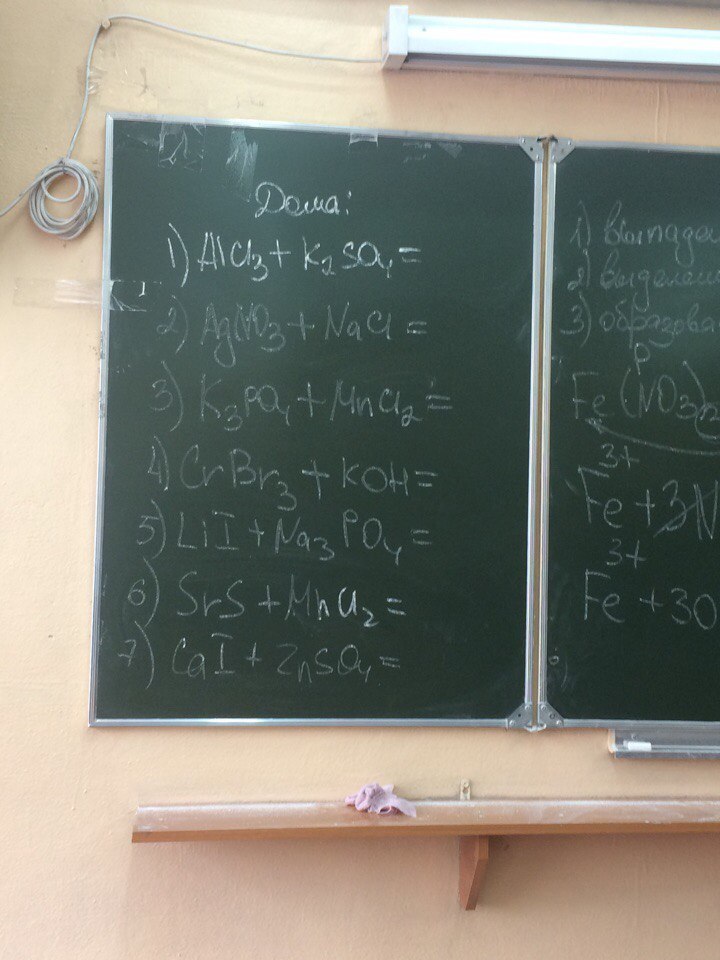 Дома:
1) AlCl₃ + K₂SO₄ =
2) AgNO₃ + NaCl =
3) K₃PO₄ + MnCl₂ =
4) CrBr₃ + KOH =
5) LiI + Na₃PO₄ =
6) SrS + MnCl₂ =
7) CaI + ZnSO₄ =
1) выпаде
2) выделе
3) образова
р
Fe(NO₃)
3+
Fe + 3N
3+
Fe + 3O